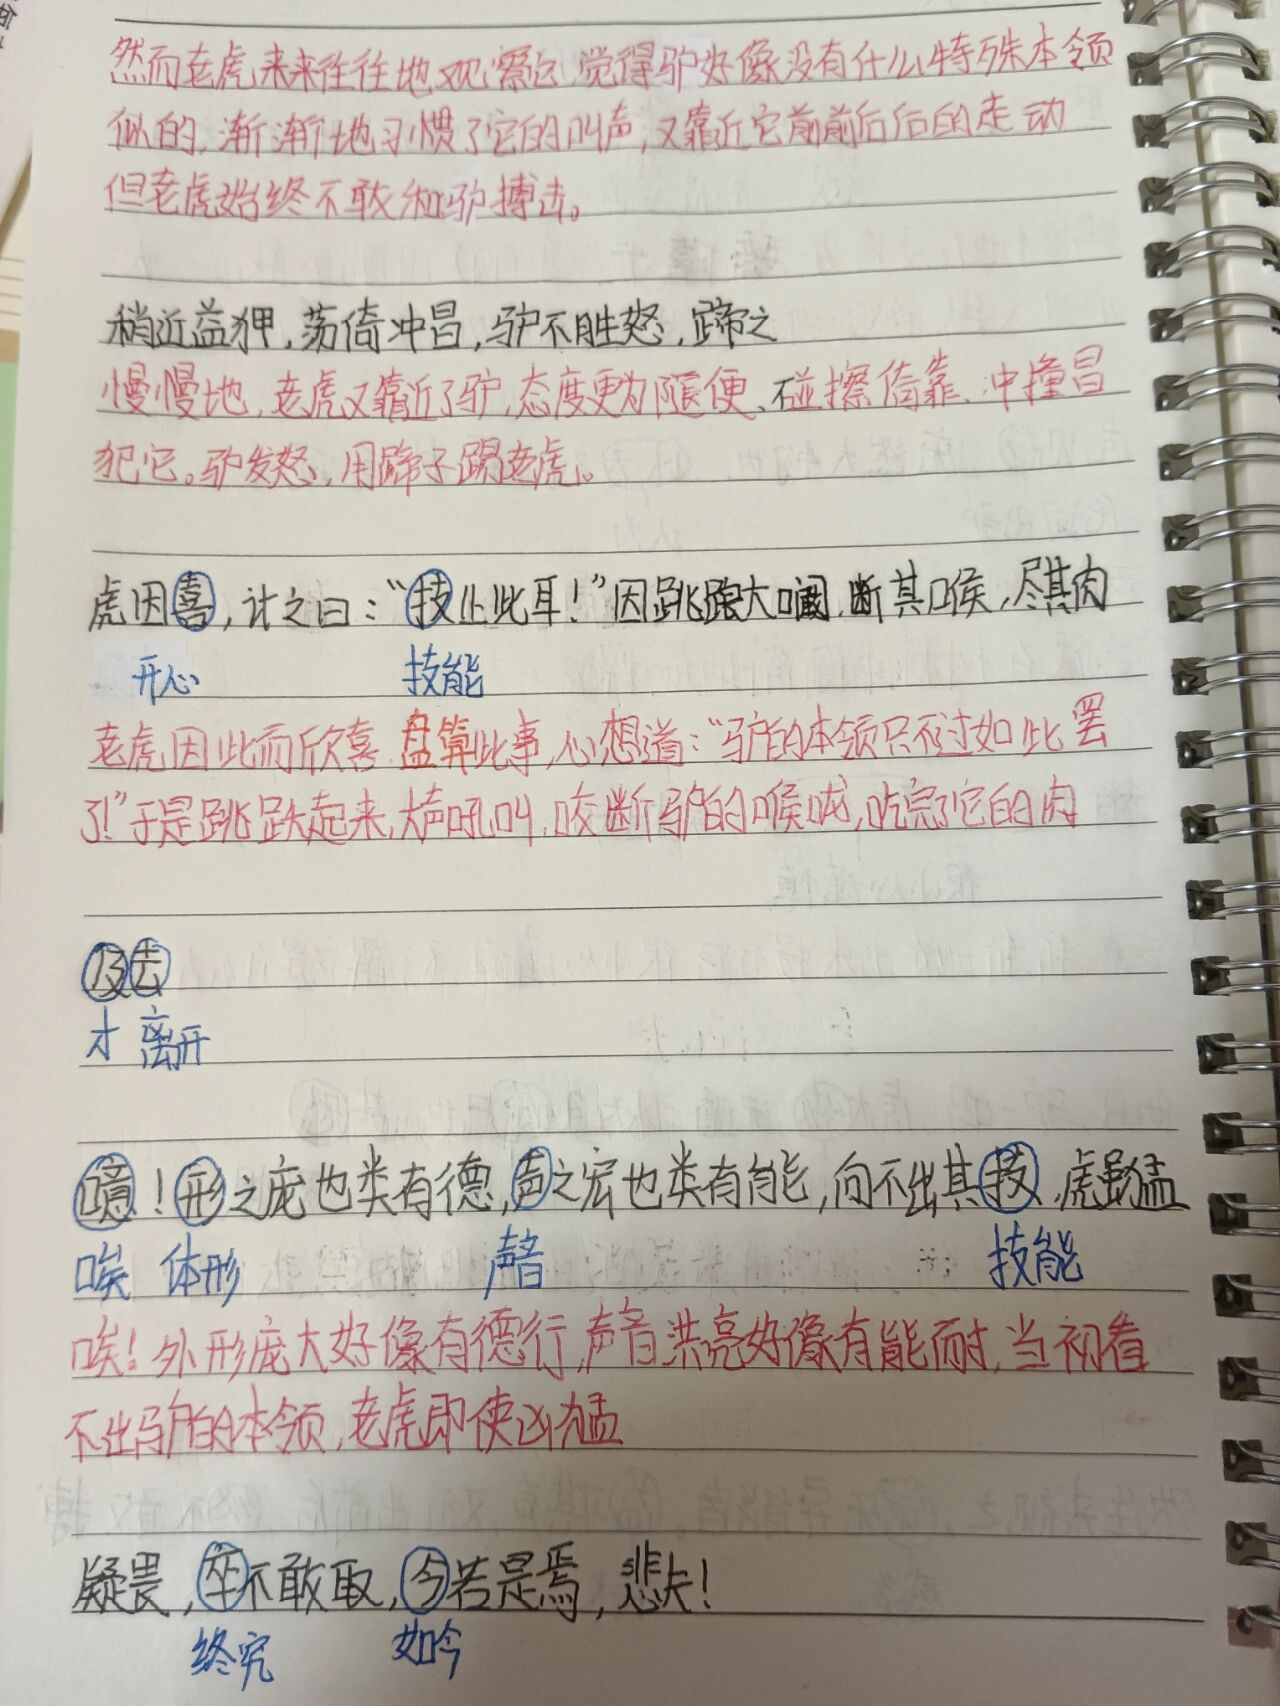 然而老虎来来往往地观察它,觉得驴好像没有什么特殊本领
似的,渐渐地习惯了它的叫声,又靠近它前前后后的走动
但老虎始终不敢和驴搏击。
稍近益狎,荡倚冲冒,驴不胜怒,蹄之
慢慢地,老虎又靠近了驴,态度更为随便、碰擦倚靠、冲撞冒
犯它。驴发怒,用蹄子踢老虎。
虎因喜,计之曰:“技止此耳!”因跳踉大㘎,断其喉,尽其肉
开心 技能
老虎因此而欣喜,盘算此事,心想道:“驴的本领只不过如此罢
了!”于是跳跃起来,大声吼叫,咬断驴的喉咙,吃完了它的肉
乃去
才 离开
噫!形之庞也类有德,声之宏也类有能,向不出其技,虎虽猛
唉 体形 声音 技能
唉!外形庞大好像有德行,声音洪亮好像有能耐,当初看
不出驴的本领,老虎即使凶猛
疑畏,卒不敢取,今若是焉,悲夫!
终究 如今